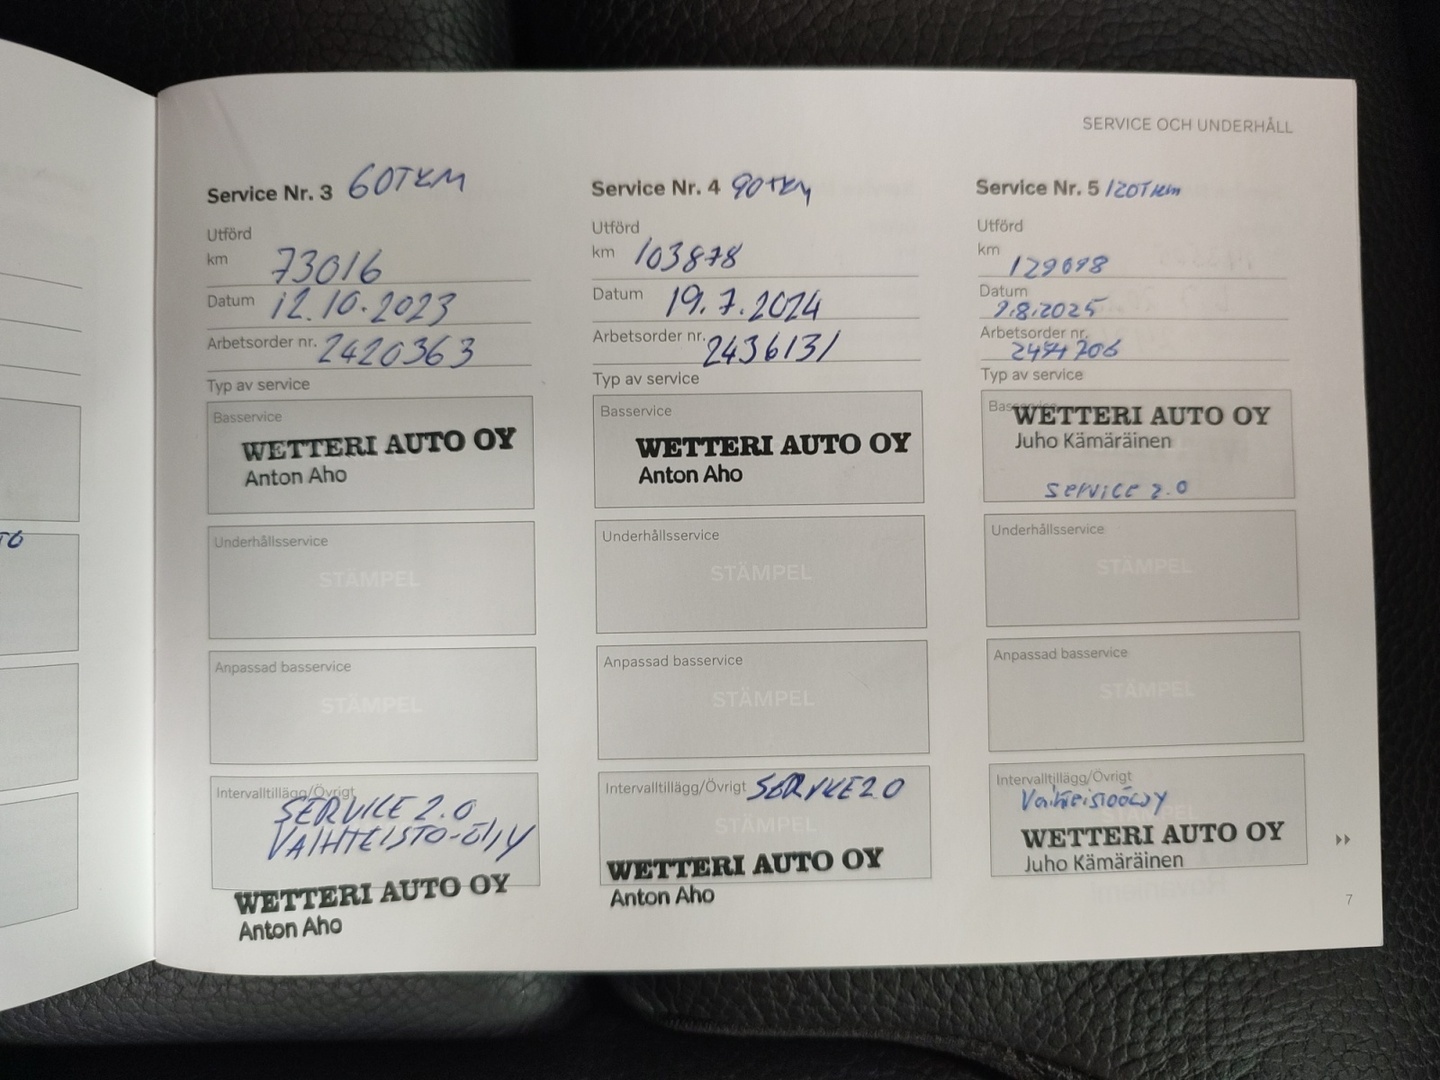 SERVICE OCH UNDERHÅLL
Service Nr. 3 60TKM
Utförd
km 73016
Datum 12.10.2023
Arbetsorder nr. 2420363
Typ av service
Basservice
WETTERI AUTO OY
Anton Aho
Underhållsservice
STÄMPEL
Anpassad basservice
STÄMPEL
Intervalltillägg/Övrigt
SERVICE 2.0
VAIHTEISTO-ÖLJY
WETTERI AUTO OY
Anton Aho
Service Nr. 4 90TKM
Utförd
km 103878
Datum 19.7.2024
Arbetsorder nr. 2436131
Typ av service
Basservice
WETTERI AUTO OY
Anton Aho
Underhållsservice
STÄMPEL
Anpassad basservice
STÄMPEL
Intervalltillägg/Övrigt SERVICE 2.0
STÄMPEL
WETTERI AUTO OY
Anton Aho
Service Nr. 5 120TKm
Utförd
km
Datum
Arbetsorder nr.
Typ av service
Basservice
WETTERI AUTO OY
Juho Kämäräinen
service 2.0
Underhållsservice
STÄMPEL
Anpassad basservice
STÄMPEL
Intervalltillägg/Övrigt
Vaihteistoöljy
WETTERI AUTO OY
Juho Kämäräinen
7